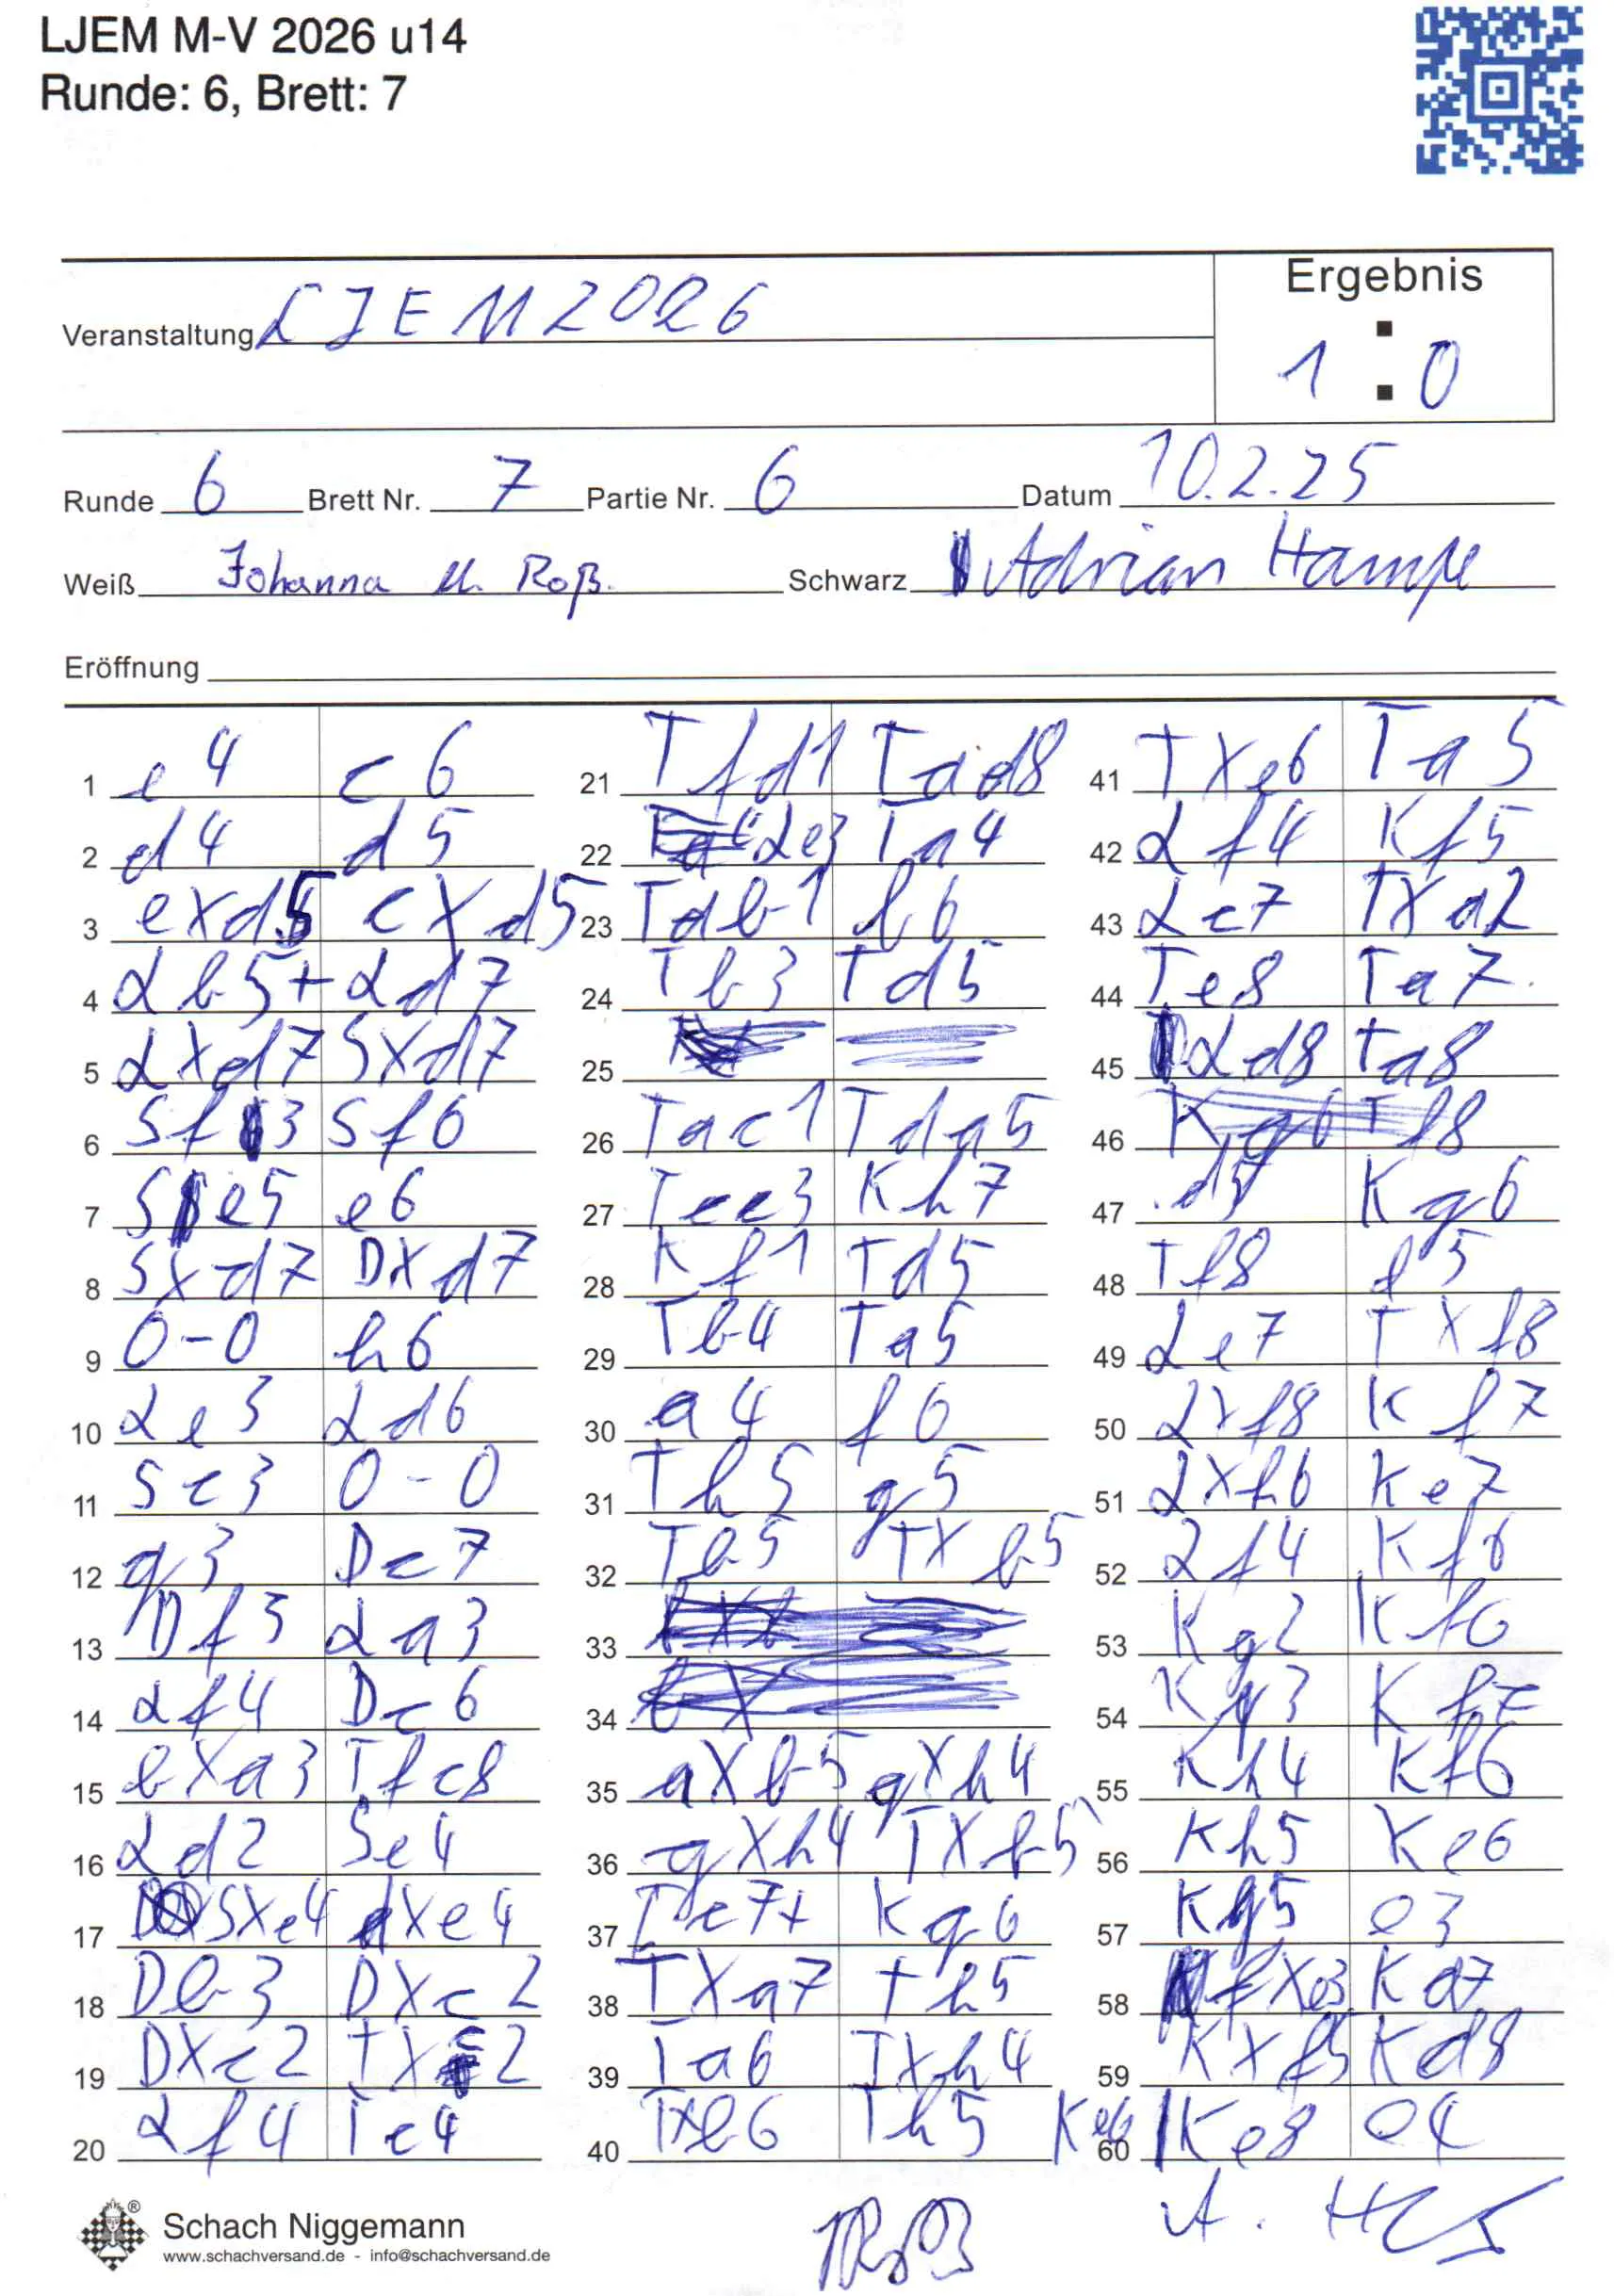 LJEM M-V 2026 u14
Runde: 6, Brett: 7
Ergebnis
Veranstaltung LJEM 2026
1 : 0
Runde 6 Brett Nr. 7 Partie Nr. 6 Datum 10.2.25
Weiß Johanna M. Roß. Schwarz Adrian Hampe
Eröffnung
1 e4 c6
2 d4 d5
3 exd5 cxd5
4 Lb5+ Ld7
5 Lxd7 Sxd7
6 Sf3 Sf6
7 Se5 e6
8 Sxd7 Dxd7
9 0-0 h6
10 Le3 Ld6
11 Sc3 0-0
12 g3 Dc7
13 Df3 La3
14 Lf4 Dc6
15 bxa3 Tfc8
16 Ld2 Se4
17 Sxe4 dxe4
18 Db3 Dxc2
19 Dxc2 Txc2
20 Lf4 Tc4
21 Tfd1 Tad8
22 Le3 Ta4
23 Tdb1 b6
24 Tb3 Td5
25
26 Tac1 Tda5
27 Tcc3 Kh7
28 Kf1 Td5
29 Tb4 Ta5
30 a4 f6
31 Th5 g5
32 Tb5 Txb5
33
34
35 axb5 gxh4
36 gxh4 Txb5
37 Tc7+ Kg6
38 Txa7 Th5
39 Ta6 Txh4
40 Txb6 Th5
41 Txe6 Ta5
42 Lf4 Kf5
43 Lc7 Txa2
44 Te8 Ta7
45 Ld8 Ta8
46 Kg6 Tf8
47 d5 Kg6
48 Tf8 f5
49 Le7 Txf8
50 Lxf8 Kf7
51 Lxh6 Ke7
52 Lf4 Kf6
53 Kg2 Kf6
54 Kg3 Kf7
55 Kh4 Kf6
56 Kh5 Ke6
57 Kg5 e3
58 fxe3 Kd7
59 Kxf5 Kd8
60 Ke6 Ke8 e4
A. H
Schach Niggemann
www.schachversand.de - info@schachversand.de